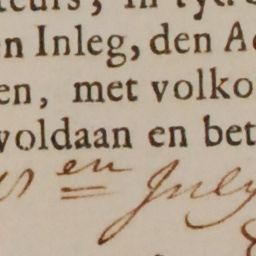 teurs, in tyt
n Inleg, den A
en, met volko
voldaan en bet
en July